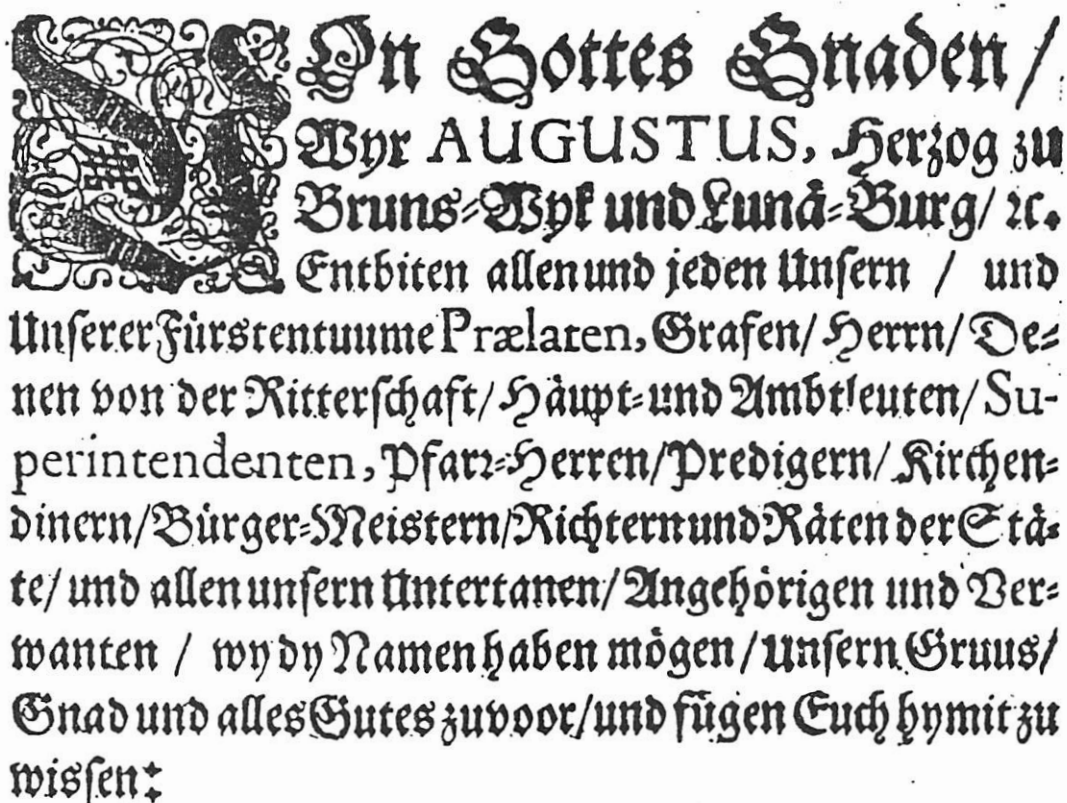 VOn Gottes Gnaden /
Wyr AUGUSTUS, Herzog zu
Bruns-Wyk und Lunä-Burg / ꝛc.
Entbiten allen und jeden Unsern / und
Unserer Fürstentuume Prælaten, Grafen / Herrn / De-
nen von der Ritterschaft / Häupt- und Ambtleuten / Su-
perintendenten, Pfarr-Herren / Predigern / Kirchen-
dinern / Bürger-Meistern / Richtern und Räten der Stä-
te / und allen unsern Untertanen / Angehörigen und Ver-
wanten / wy dy Namen haben mögen / unsern Gruus /
Gnad und alles Gutes zuvoor / und fügen Euch hymit zu
wissen: